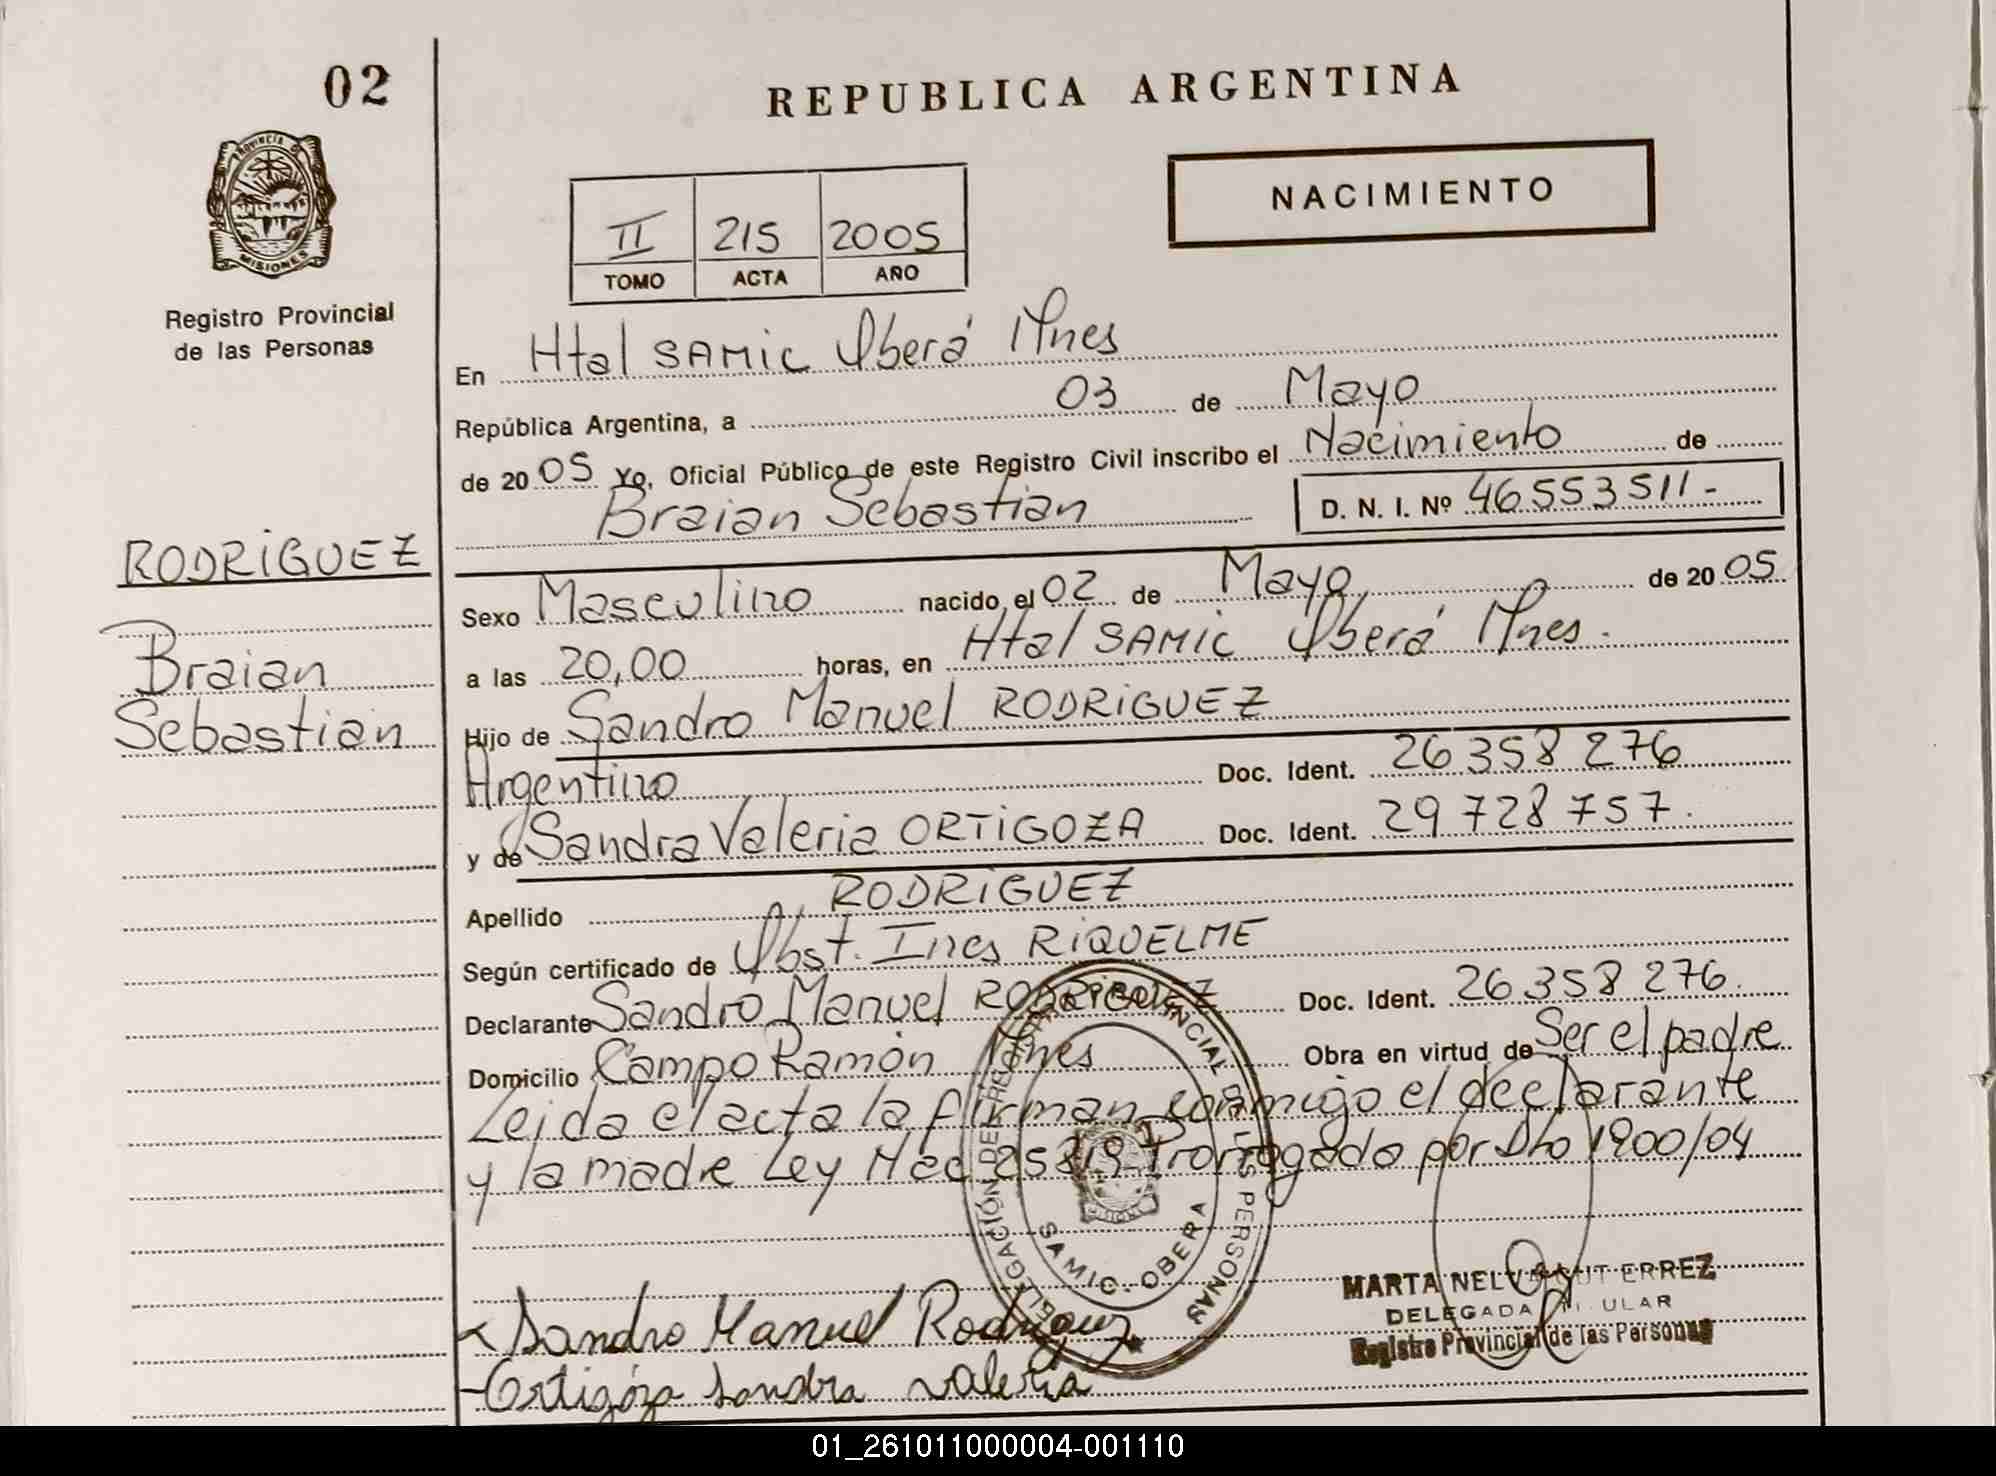 02
REPUBLICA ARGENTINA
PROVINCIA DE
MISIONES
Registro Provincial
de las Personas
NACIMIENTO
II 215 2005
TOMO ACTA AÑO
En Htal SAMIC Oberá Mnes
República Argentina, a 03 de Mayo
de 2005 Yo, Oficial Público de este Registro Civil inscribo el Nacimiento de
Braian Sebastian D. N. I. Nº 46553511-
RODRIGUEZ
Braian
Sebastian
Sexo Masculino nacido el 02 de Mayo de 2005
a las 20,00 horas, en Htal SAMIC Oberá Mnes.
Hijo de Sandro Manuel RODRIGUEZ
Argentino Doc. Ident. 26 358 276
y de Sandra Valeria ORTIGOZA Doc. Ident. 29 728 757.
Apellido RODRIGUEZ
Según certificado de Obst. Ines RIQUELME
Declarante Sandro Manuel RODRIGUEZ Doc. Ident. 26 358 276.
Domicilio Campo Ramón Mnes Obra en virtud de Ser el padre
Leida el acta la firman conmigo el declarante
y la madre Ley Nac 25819 Prorrogado por Dto 1900/04
DELEGACIÓN DE REGISTRO PROVINCIAL DE LAS PERSONAS
SAMIC-OBERA
Sandro Manuel Rodriguez
Ortigoza Sandra Valeria
MARTA NELVA GUTIERREZ
DELEGADA TITULAR
Registro Provincial de las Personas
01_261011000004-001110